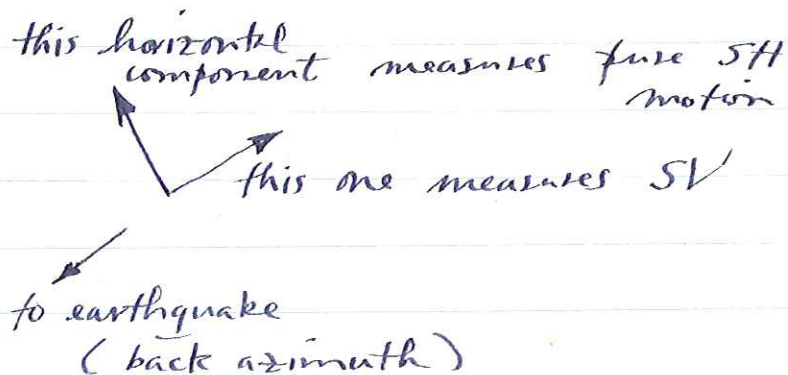 this horizontal
component measures pure SH
motion
this one measures SV
to earthquake
(back azimuth)